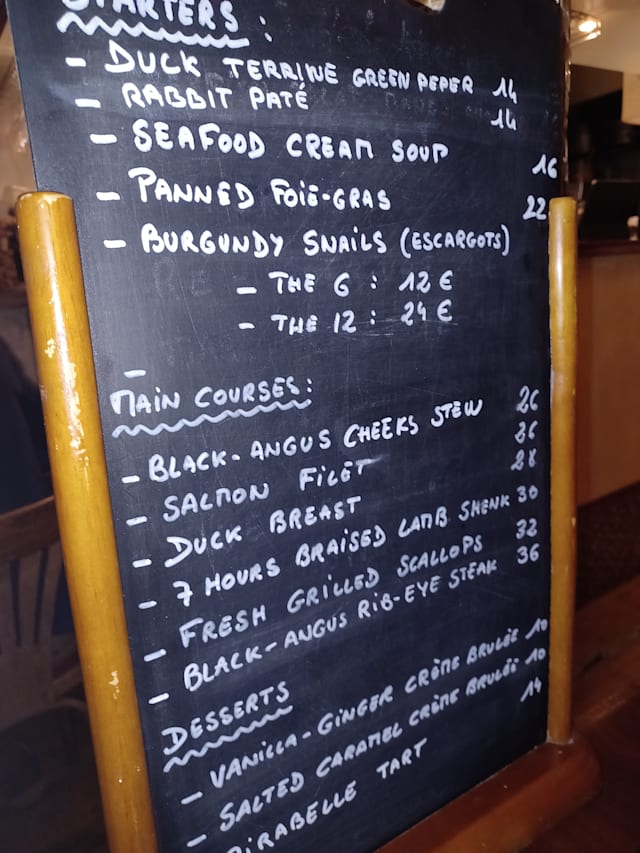 STARTERS :
- DUCK TERRINE GREEN PEPER 14
- RABBIT PATÉ 14
- SEAFOOD CREAM SOUP 16
- PANNED FOIE-GRAS 22
- BURGUNDY SNAILS (ESCARGOTS)
- THE 6 : 12 €
- THE 12 : 24 €
-
MAIN COURSES:
- BLACK-ANGUS CHEEKS STEW 26
- SALMON FILET 26
- DUCK BREAST 28
- 7 HOURS BRAISED LAMB SHENK 30
- FRESH GRILLED SCALLOPS 32
- BLACK-ANGUS RIB-EYE STEAK 36
DESSERTS
- VANILLA-GINGER CRÈME BRULÉE 10
- SALTED CARAMEL CRÈME BRULÉE 10
MIRABELLE TART 14